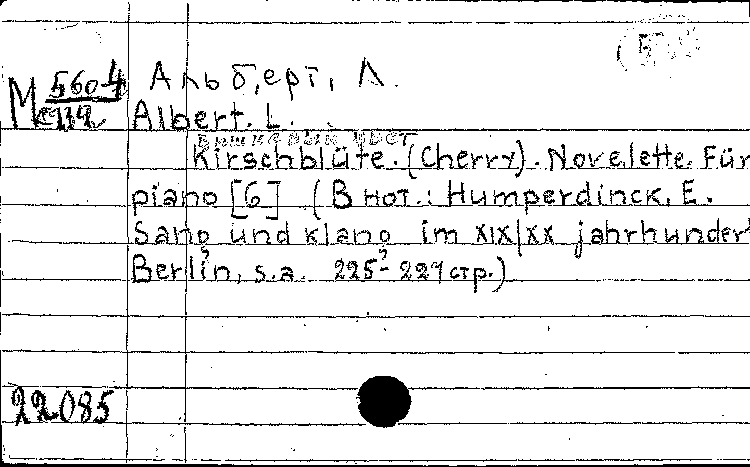 Альберт, Л.
М 5604
Albert. L.
Вишневый цвет
Kirschblüte. (Cherry). Novelette. Für
piano [6] (В нот.: Humperdinck, E.
Sang und Klang im XIX/XX jahrhundert
Berlin, s.a. 225-229 стр.)
22085